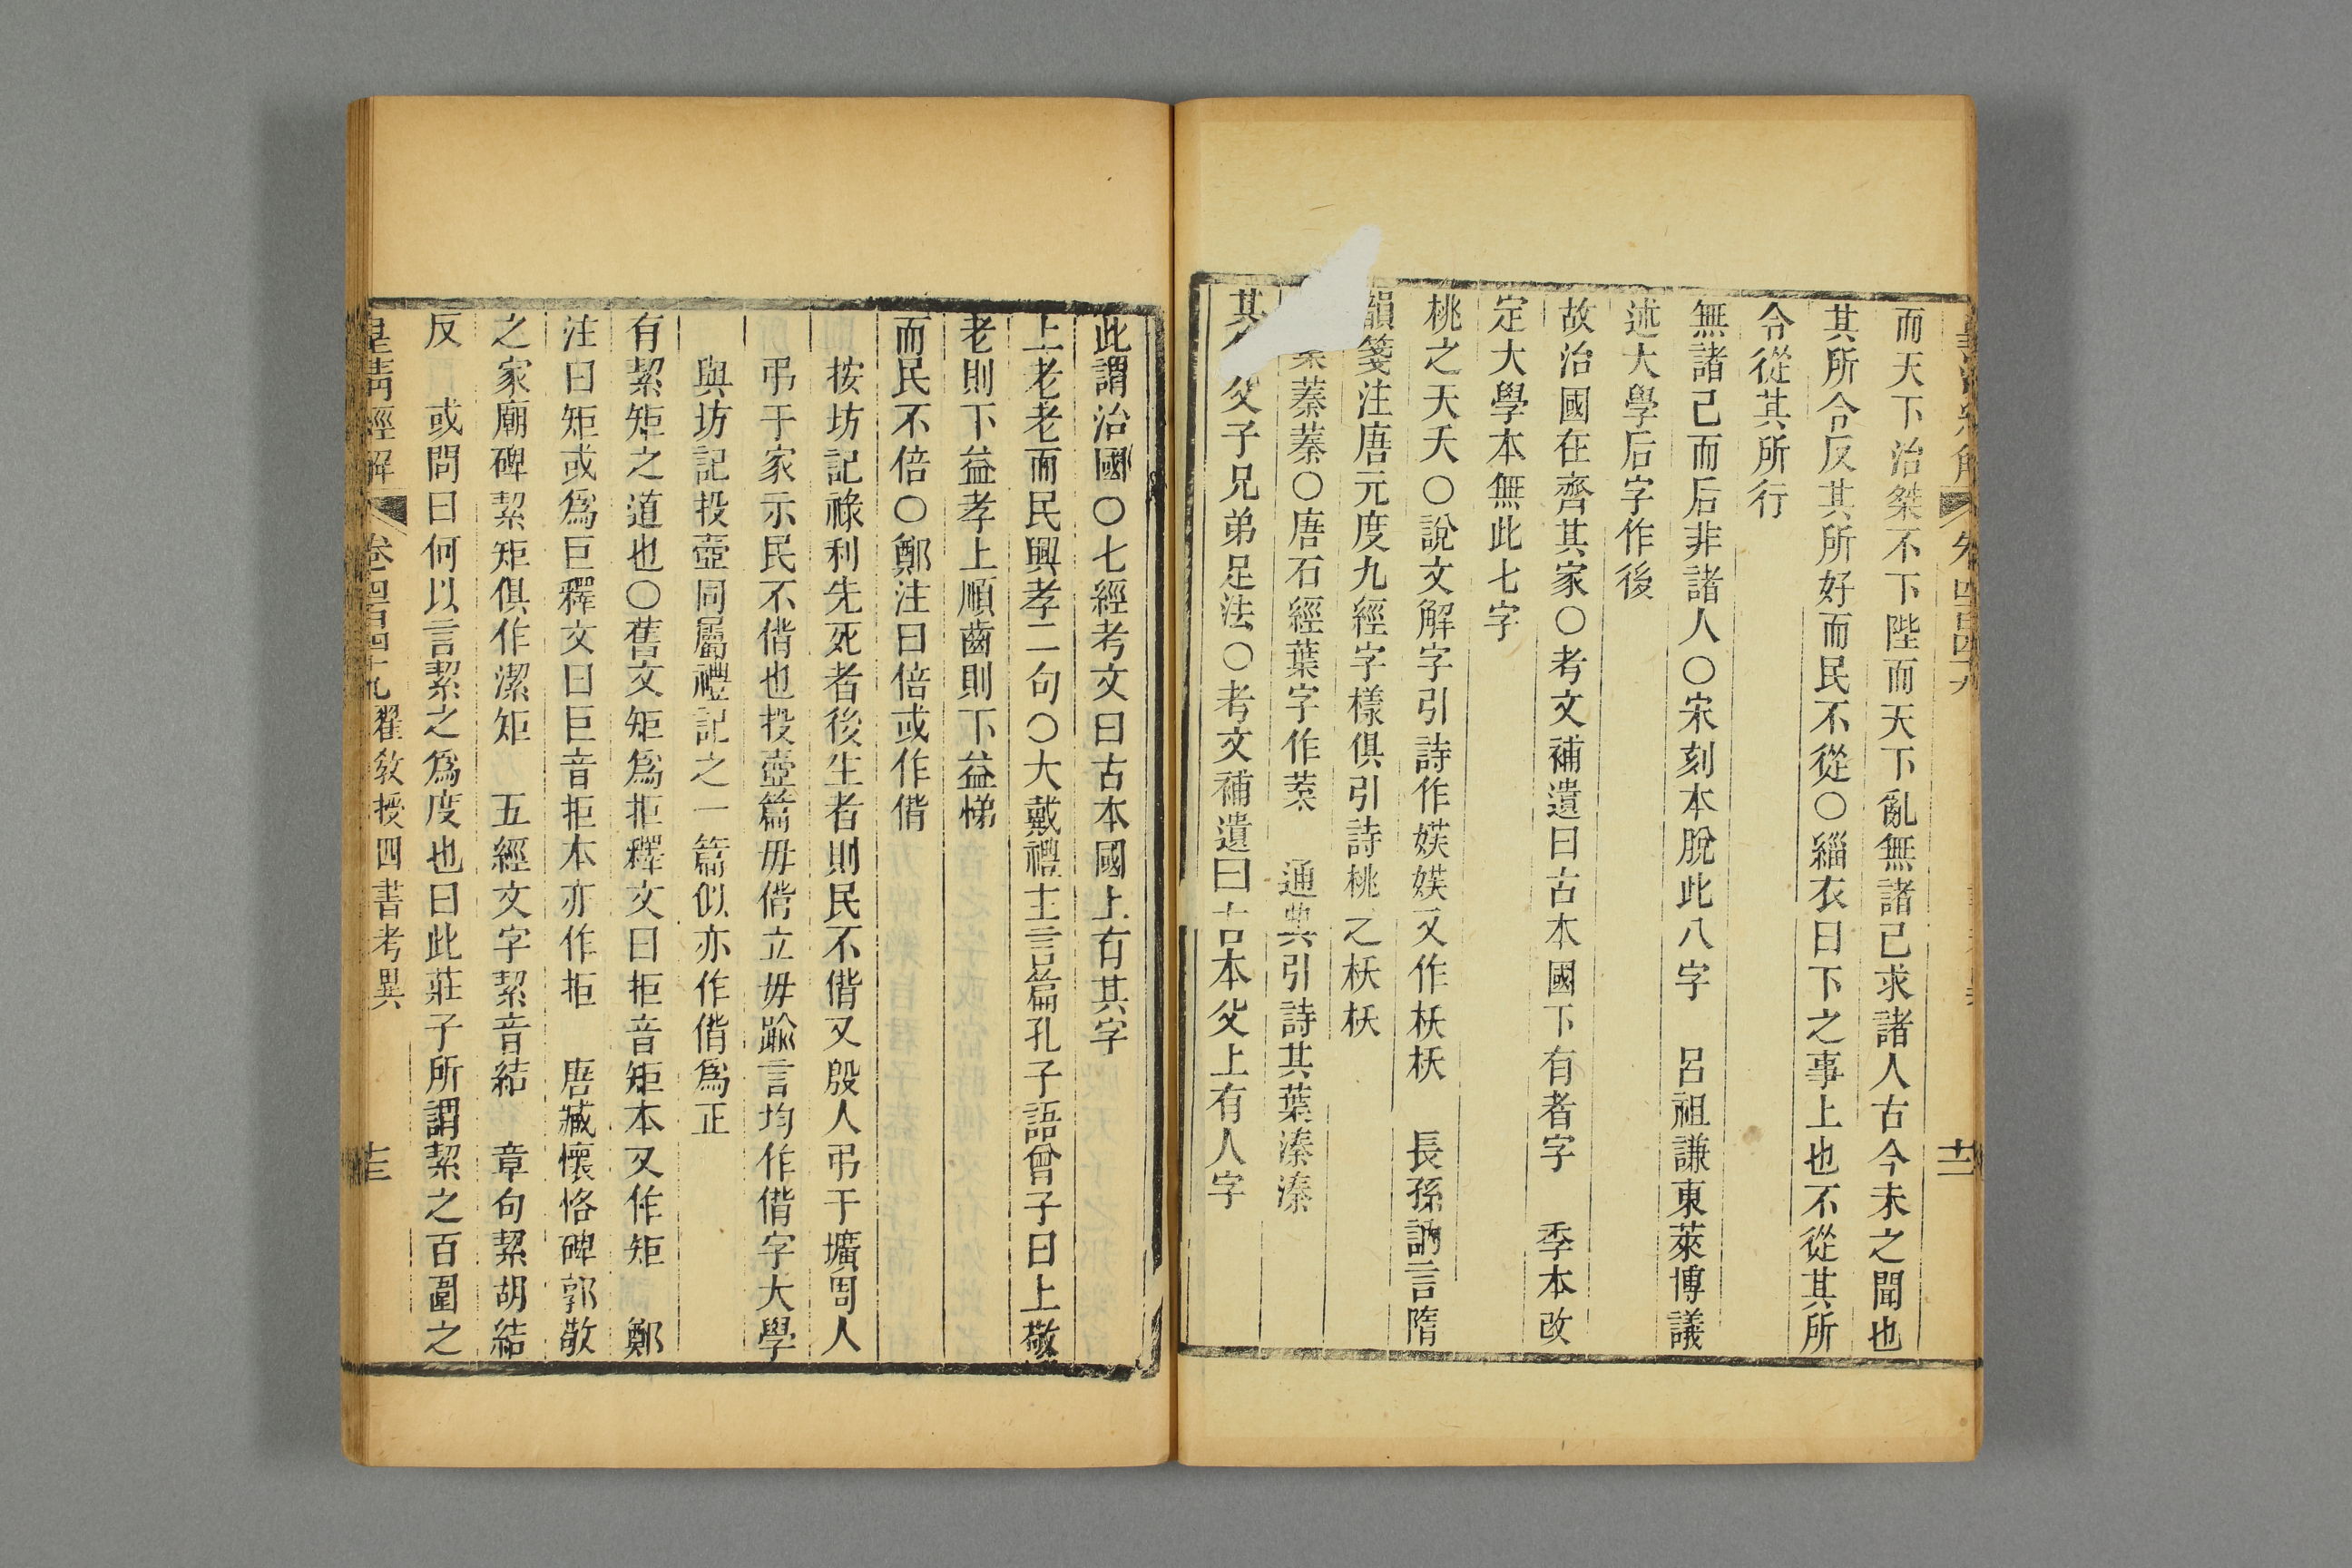 而天下治桀不下陛而天下亂無諸己求諸人古今未之聞也
其所令反其所好而民不從〇緇衣曰下之事上也不從其所
令從其所行
無諸己而后非諸人〇宋刻本脫此八字　呂祖謙東萊博議
述大學后字作後
故治國在齊其家〇考文補遺曰古本國下有者字　季本改
定大學本無此七字
桃之夭夭〇說文解字引詩作娱娱又作枖枖　長孫訥言隋
韻箋注唐元度九經字樣俱引詩桃之枖枖
葉蓁蓁〇唐石經葉字作𦯧　通典引詩其葉溱溱
其父子兄弟足法〇考文補遺曰古本父上有人字
此謂治國〇七經考文曰古本國上有其字
上老老而民興孝二句〇大戴禮主言篇孔子語曾子曰上敬
老則下益孝上順齒則下益悌
而民不倍〇鄭注曰倍或作偝
按坊記祿利先死者後生者則民不偝又殷人弔于壙周人
弔于家示民不偝也投壺篇毋偝立毋踰言均作偝字大學
與坊記投壺同屬禮記之一篇似亦作偝爲正
有絜矩之道也〇舊文矩爲拒釋文曰拒音矩本又作矩　鄭
注曰矩或爲巨釋文曰巨音拒本亦作拒　唐臧懷恪碑郭敬
之家廟碑絜矩俱作潔矩　五經文字絜音結　章句絜胡結
反　或問曰何以言絜之爲度也曰此莊子所謂絜之百圍之
皇清經解　卷四百四十九　翟教授四書考異　十三